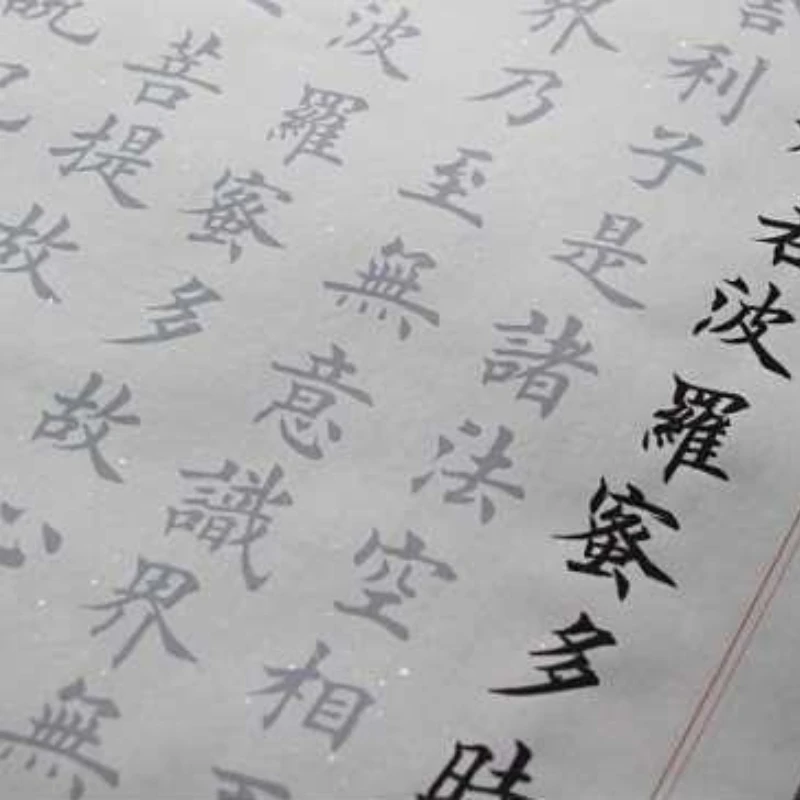 若波羅蜜多時
舍利子是諸法空相
界乃至無意識界無
波羅蜜多故心
菩提故
說